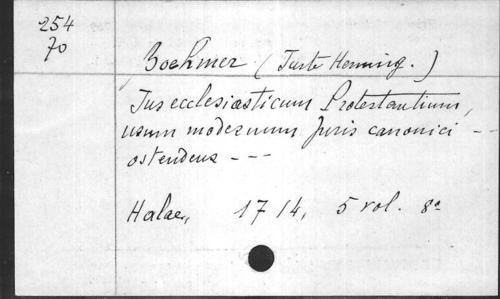 254
70
Boehmer (Juste Henning.)
Jus ecclesiæsticum Protestantium,
usum modernum Juris canonici --
ostendens ---
Halae, 1714, 5 vol. 8º